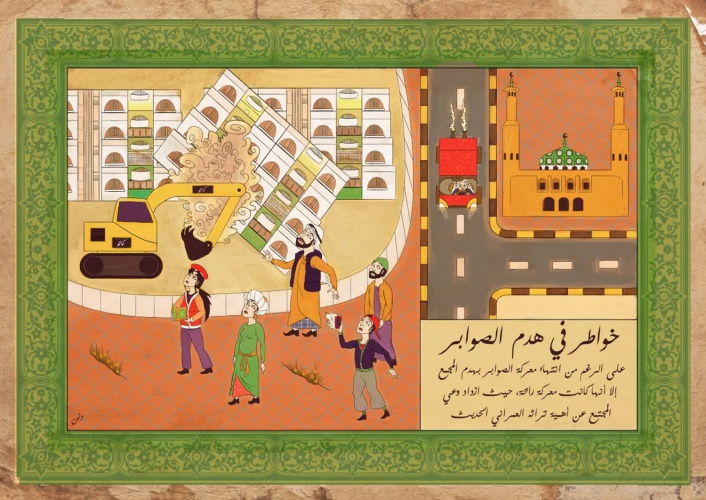 خواطر في هدم الصوابر
على الرغم من انتهاء معركة الصوابر بهدم المجمع
إلا أنها كانت معركة رائعة، حيث ازداد وعي
المجتمع عن أهمية تراثه العمراني الحديث